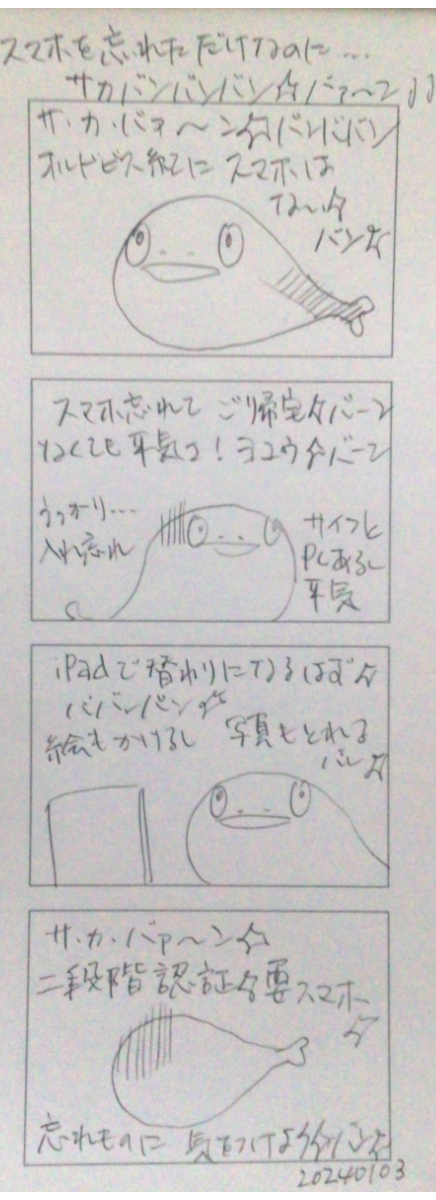 スマホを忘れただけなのに...
サカバンバンバン☆バァ〜ン♪♪
サ・カ・バァ〜ン☆バンバババン
オルドビス紀に スマホは
な〜い☆
バン☆
スマホ忘れて ご帰宅☆バーン
なくても平気っ!ヨユウ☆バーン
うっかり...
入れ忘れ
サイフと
PCあるし
平気
iPadで替わりになるはず☆
ババンバン☆
絵もかけるし 写真もとれる
バン☆
サ・カ・バァ〜ン☆
二段階認証☆要スマホ
☆
忘れものに 気をつけよう☆バン☆
20240103